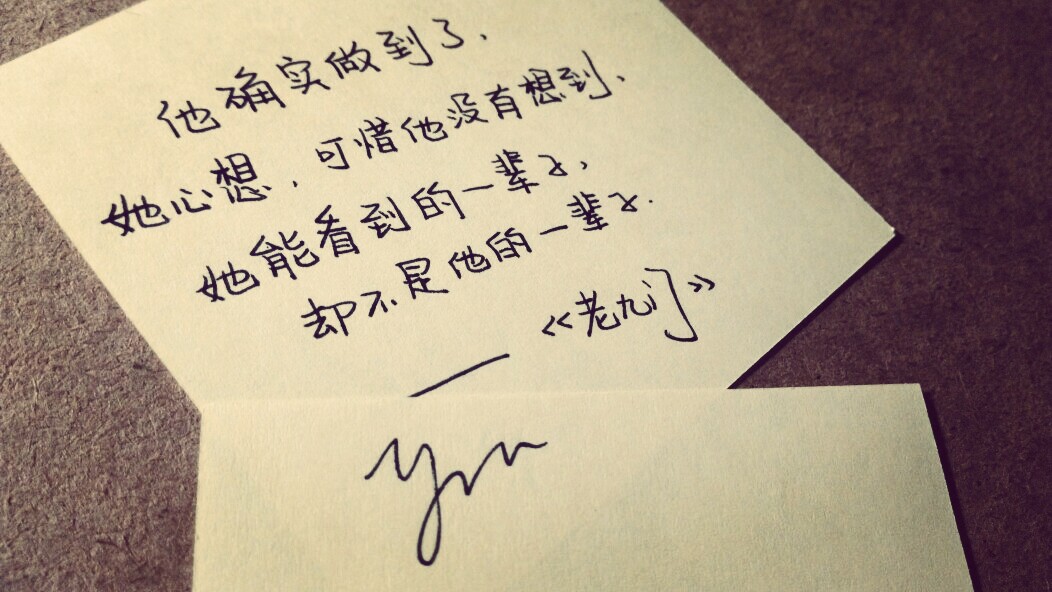 他确实做到了.
她心想,可惜他没有想到,
她能看到的一辈子,
却不是他的一辈子.
——《老九门》